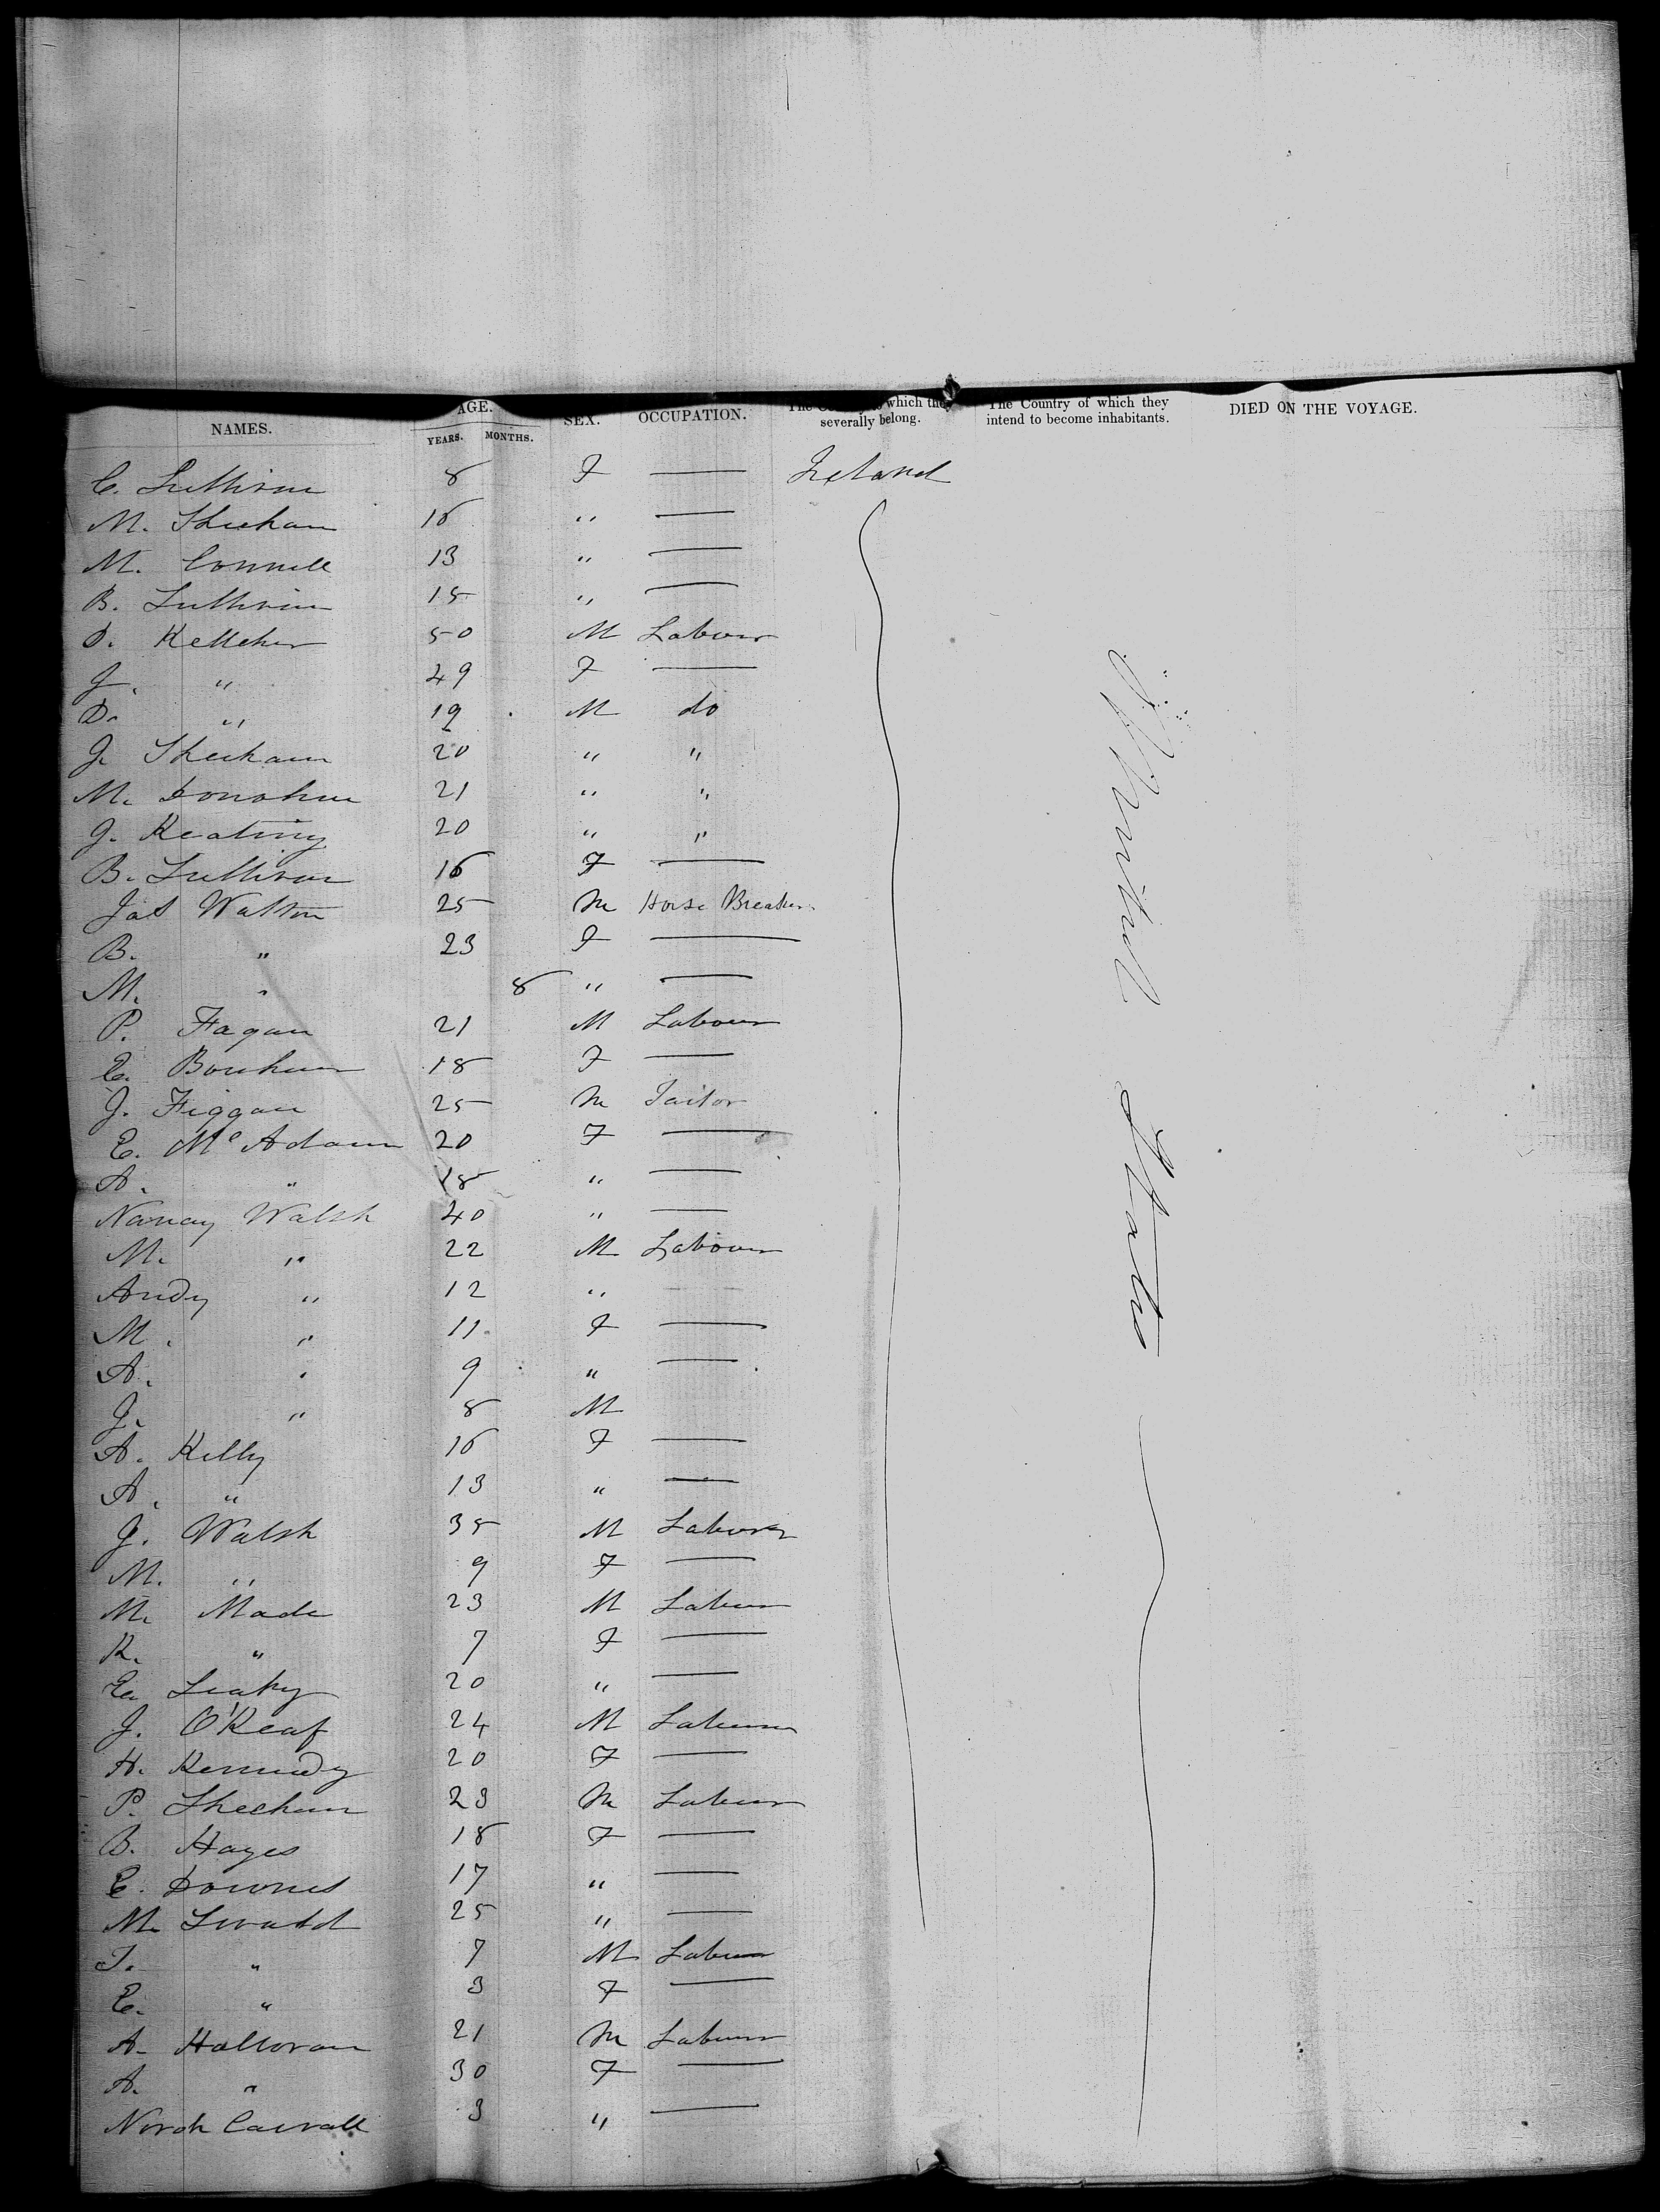 NAMES. AGE. YEARS. MONTHS. SEX. OCCUPATION. The which they severally belong. The Country of which they intend to become inhabitants. DIED ON THE VOYAGE.
C. Sullivan 8 F — Ireland
M. Sheehan 16 " —
M. Connell 13 " —
B. Sullivan 15 " —
D. Kelleher 50 M Labour
J. " 49 F —
D. " 19 M do
J. Sheehan 20 " "
M. Donohue 21 " "
J. Keating 20 " "
B. Sullivan 16 F —
Jas Walton 25 M Horse Breaker
B. " 23 F —
M. " 8 " —
P. Fagan 21 M Labour
E. 18 F —
J. Figgan 25 M Tailor
E. Mc Adam 20 F —
A. " 18 " —
Nancy Walsh 40 " —
M. " 22 M Labour
Andy " 12 "
M. " 11 F —
A. " 9 " —
J. " 8 M
A. Kelly 16 F —
A. " 13 " —
J. Walsh 35 M Labour
M. " 9 F —
M. Made 23 M Labour
K. " 7 F —
E. Leahy 20 " —
J. O'Keaf 24 M Labour
H. Kennedy 20 F —
P. Sheehan 23 M Labour
B. Hayes 18 F —
E. Downes 17 " —
M. 25 " —
T. " 7 M Labour
E. " 3 F —
A. Halloran 21 M Labour
A. " 30 F —
Norah Carrall 3 " —
United States